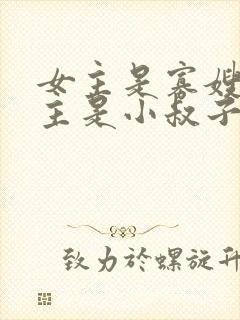 女主是寡嫂
主是小叔子
致力於螺旋升